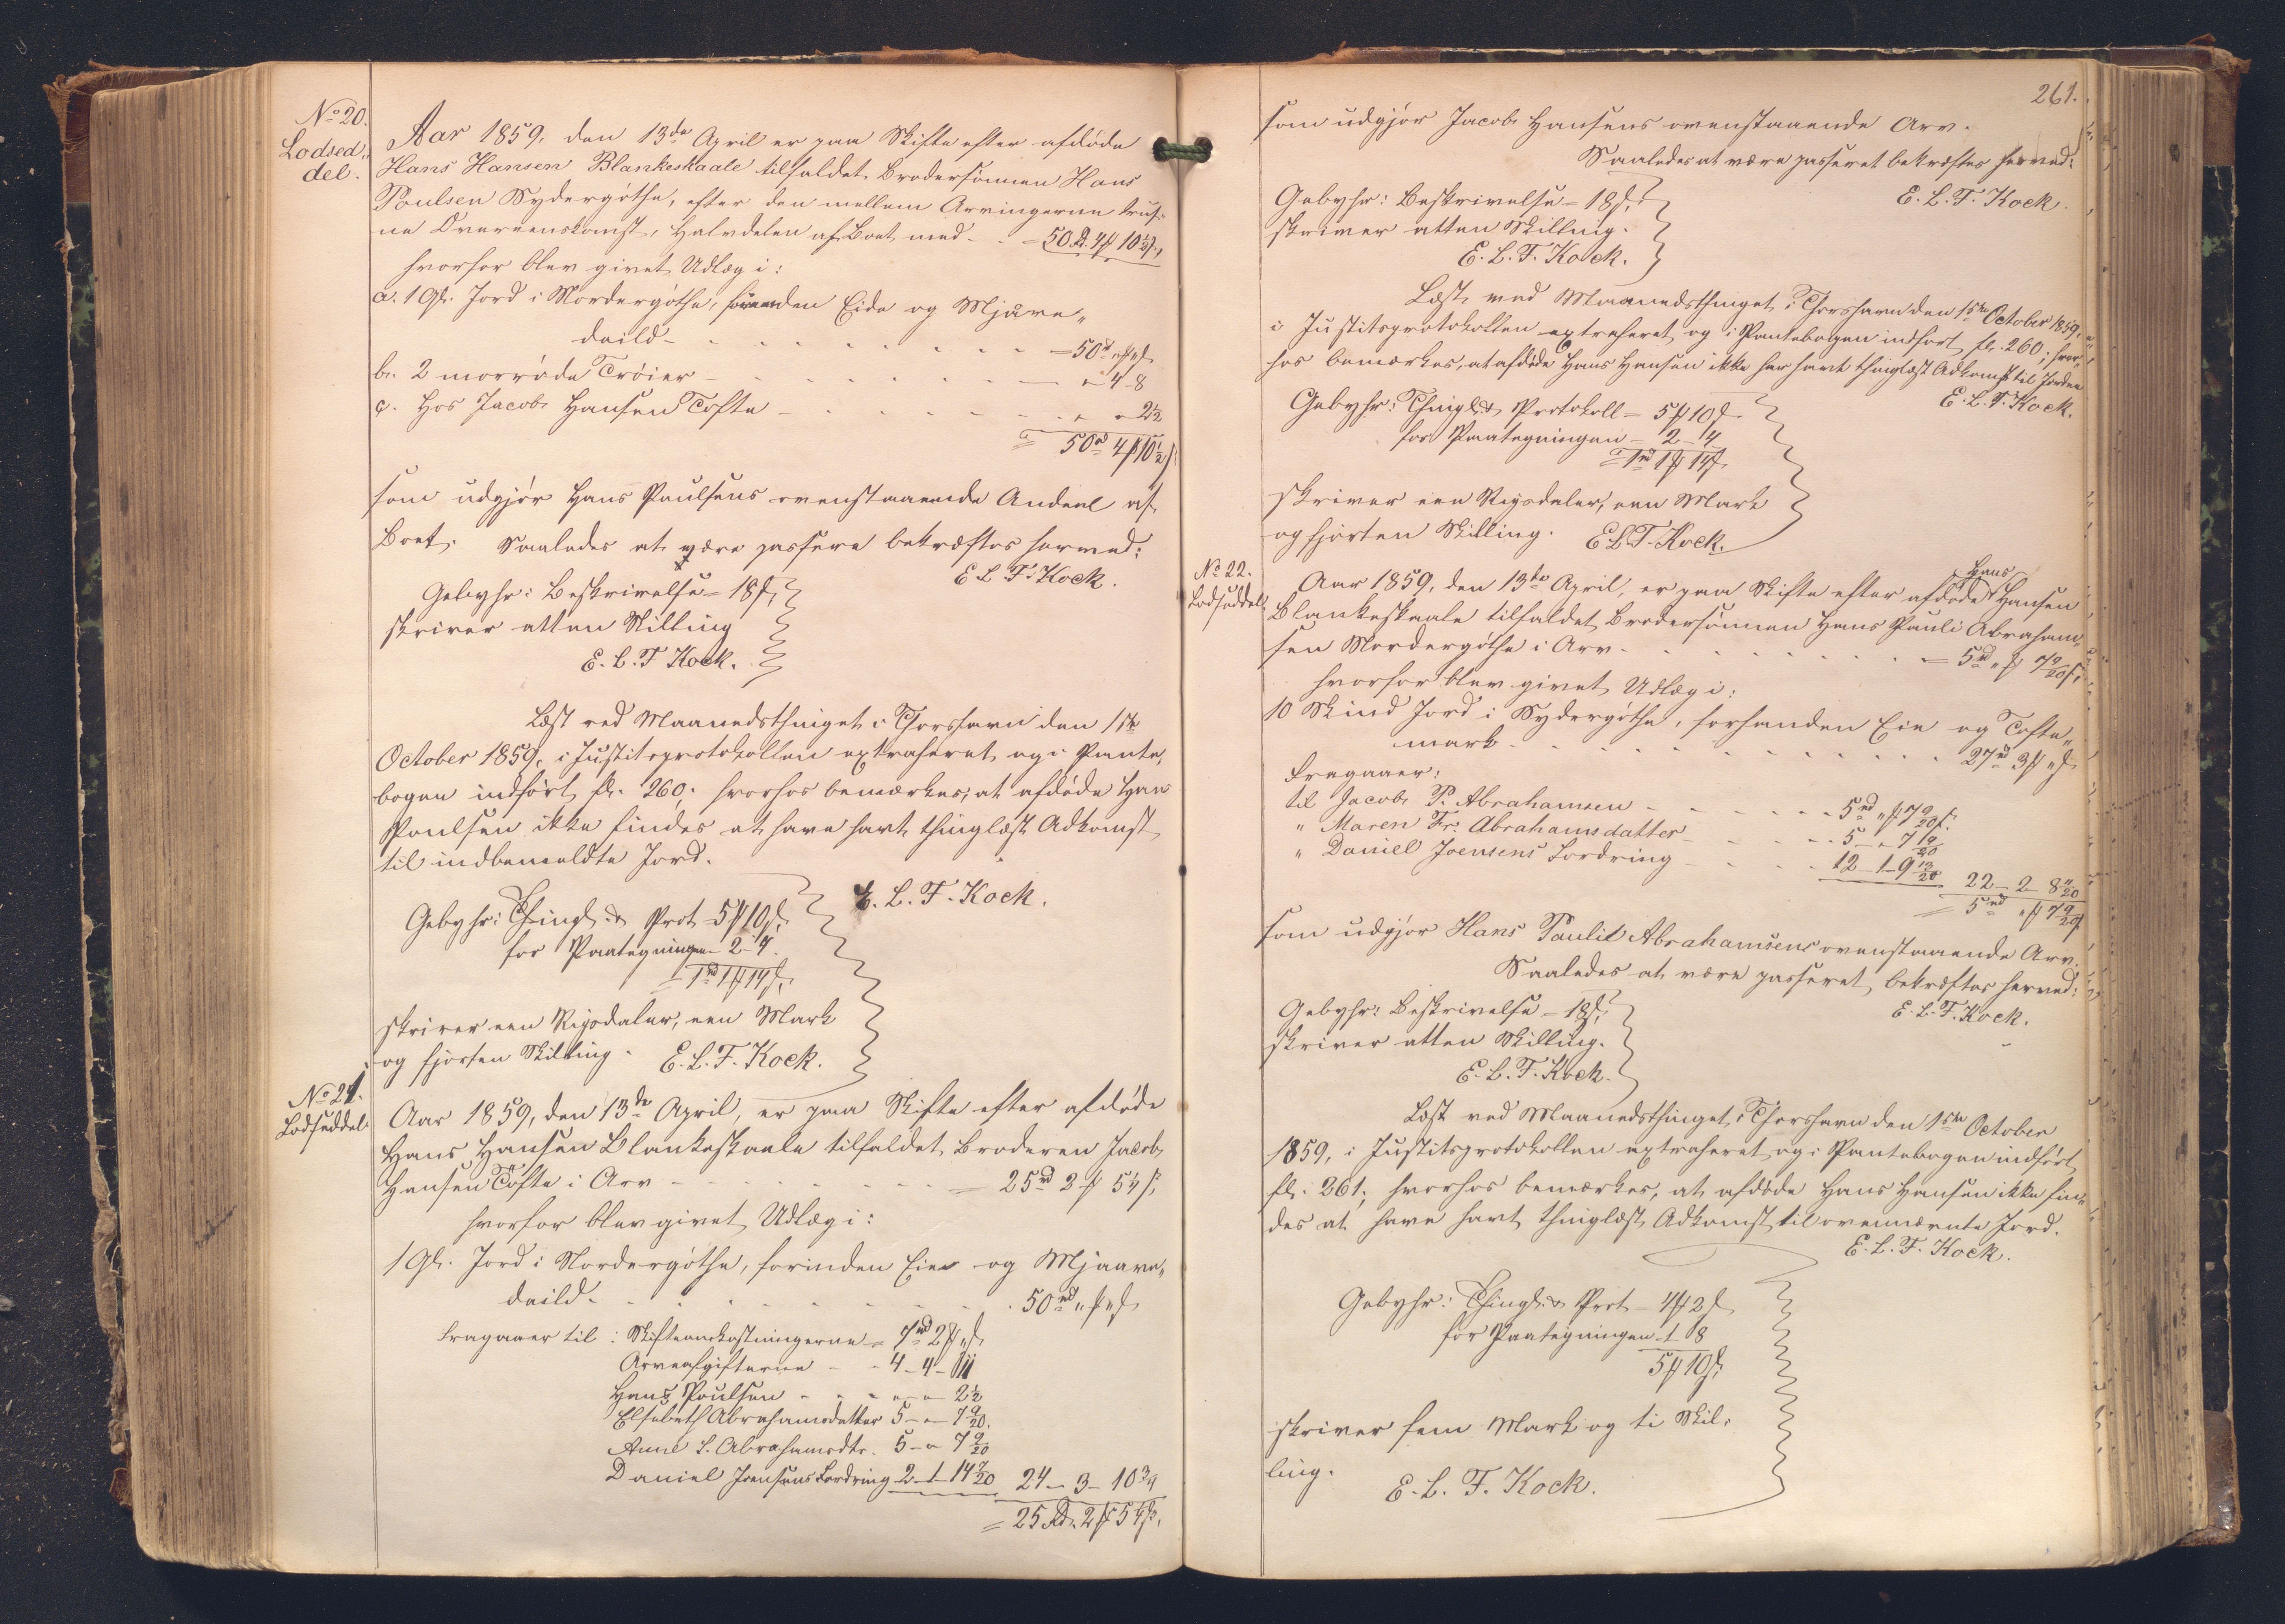 No 20.
Lodsed„
del.
Aar 1859, den 13de April er paa Skifte efter afdøde
Hans Hansen Blankeskaale tilfaldet Brodersønnen Hans
Poulsen Sydergøthe, efter den mellem Arvingerne truf„
ne Overeenskomst, Halvdelen af Boet med - - = 50 Rd. 4 ß 10½ s,
hvorfor blev givet Udlæg i:
a. 1 Gl. Jord i Nordergøthe, forinden Eide og Mjåve„
deild - - - - = 50 rd „ ß „ s
b. 2 morrøde Trøier - - - - „ - 4 - 8
c. Hos Jacob Hansen Tofte - - - - „ „ 2½
= 50 rd 4 ß 10½ s
som udgjør Hans Paulsens ovenstaaende Andeel af
Boet. Saaledes at være passere bekræftes herved:
E L F. Kock.
Gebyhr: Beskrivelse = 18 s,
skriver atten Skilling
E. L. F Kock.
Læst ved Maanedsthinget i Thorshavn den 1ste
October 1859, i Justitsprotokollen extraheret og i Pante„
bogen indført fl. 260; hvorhos bemærkes, at afdøde Hans
Poulsen ikke findes at have havt thinglæst Adkomst
til indbemeldte Jord.
E. L. F. Kock.
Gebyhr: Thingl. & Prot - 5 ß 10 s,
for Paategningen - 2 - 4.
= 1 rd 1 ß 14 s,
skriver een Rigsdaler, een Mark
og fjorten Skilling. E. L. F. Kock.
No 21.
Lodseddel.
Aar 1859, den 13de April, er paa Skifte efter afdøde
Hans Hansen Blankeskaale tilfaldet Broderen Jacob
Hansen Tofte i Arv - - - - = 25 rd 2 ß 5¼ s,
hvorfor blev givet Udlæg i:
1 Gl. Jord i Nordergøthe, forinden Eie og Mjaave„
deild. - - - - 50 rd „ ß „ s
fragaaer til: Skifteomkostningerne = 7 rd 2 ß „ s
Arveafgifterne - - 4 - 4 - 11
Hans Poulsen - - - „ - „ - 2½
Elsebeth Abrahamsdatter 5 - „ - 7 9/20.
Anne S. Abrahamsdtr. 5 - „ 7 9/20
Daniel Joensens Fordring 2 - 1 - 14 7/20 24 - 3 - 10¾
= 25 Rd. 2 ß 5¼ s,
261.
som udgjør Jacob Hansens ovenstaaende Arv.
Saaledes at være passeret bekræftes herved:
E. L. F. Kock.
Gebyhr: Beskrivelse = 18 s,
skriver atten Skilling.
E. L. F. Kock.
Læst ved Maanedsthinget i Thorshavn den 1ste October 1859,
i Justitsprotokollen extraheret og i Pantebogen indført fl. 260; hvor„
hos bemærkes, at afdøde Hans Hansen ikke har havt thinglæst Adkomst til Jorden
E. L. F. Kock.
Gebyhr: Thingl. & Protokoll = 5 ß 10 s
for Paategningen = 2 - 4
= 1 rd 1 ß 14 s
skriver een Rigsdaler, een Mark
og fjorten Skilling. E. L. F. Kock.
No 22.
Lodseddel.
Aar 1859, den 13de April, er paa Skifte efter afdøde Hans Hansen
Blankeskaale tilfaldet Brodersønnen Hans Pauli Abraham„
sen Nordergøthe i Arv - - - - = 5 rd „ ß 7 9/20 s,
hvorfor blev givet Udlæg i:
10 Skind Jord i Sydergøthe, forhanden Eie og Tofte„
mark - - - - 27 rd 3 ß „ s
fragaaer:
til Jacob P. Abrahamsen - - - - 5 rd „ ß 7 9/20 s.
„ Maren Fr. Abrahamsdatter - - - - 5 - „ - 7 9/20
„ Daniel Joensens Fordring - - - - 12 - 1 - 9 13/20 22 - 2 - 8 11/20
= 5 rd „ ß 7 9/20 s
som udgjør Hans Paulil Abrahamsens ovenstaaende Arv.
Saaledes at være passeret, bekræftes herved:
E. L. F. Kock.
Gebyhr: Beskrivelse = 18 s,
skriver atten Skilling.
E. L. F. Kock.
Læst ved Maanedsthinget i Thorshavn den 1ste October
1859, i Justitsprotokollen extraheret og i Pantebogen indført
fl. 261; hvorhos bemærkes, at afdøde Hans Hansen ikke fin„
des at have havt thinglæst Adkomst til ovennævnte Jord.
E. L. F. Kock.
Gebyhr: Thingl. & Prot - 4 ß 2 s
for Paategningen 1 8
5 ß 10 s,
skriver fem Mark og ti Skil„
ling.
E. L. F. Kock.